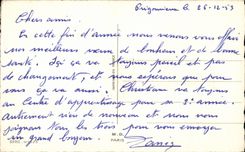 Périgueux le 26-12-53
Chers amis.
En cette fin d'année nous venons vous offrir
nos meilleurs vœux de bonheur et de bonne
santé. Ici ça va toujours pareil et pas
de changement, et nous espérons que pour
vous ça va aussi. Christian va toujours
au Centre d'apprentissage pour sa 3e année.
Autrement rien de nouveau et nous nous
joignons tous les trois pour vous envoyer
un grand bonjour.